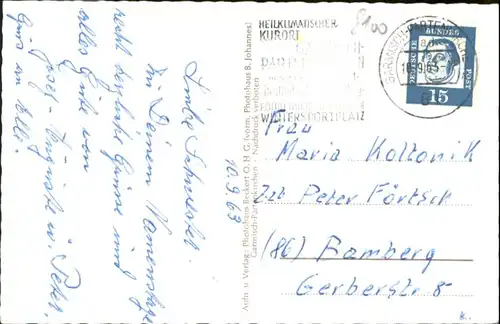 HEILKLIMATISCHER
KURORT
WINTERSPORTPLATZ
8100
GARMISCH-PARTENKIRCHEN
DEUTSCHE BUNDESPOST
15
Liebe Schwester.
Zu Deinem Namenstage
recht herzliche Grüsse und
alles Gute von
Grüss an alle.
10.9.63
Aufn. u. Verlag: Photohaus Beckert O.H.G. (vorm. Photohaus B. Johannes)
Garmisch-Partenkirchen · Nachdruck verboten
Frau
Maria Koltonik
Zzt Peter Förtsch
(86) Bamberg
Gerberstr 8